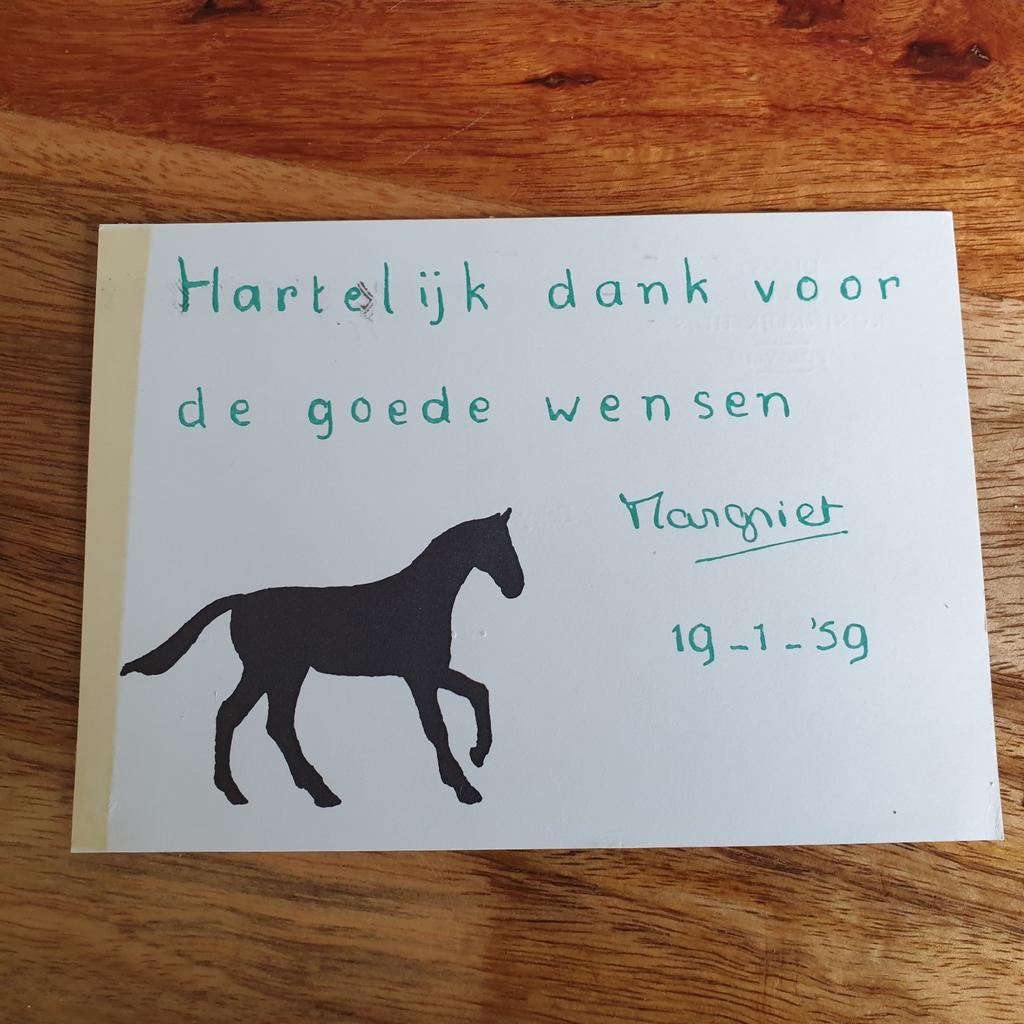 Hartelijk dank voor
de goede wensen
Margriet
19-1-'59